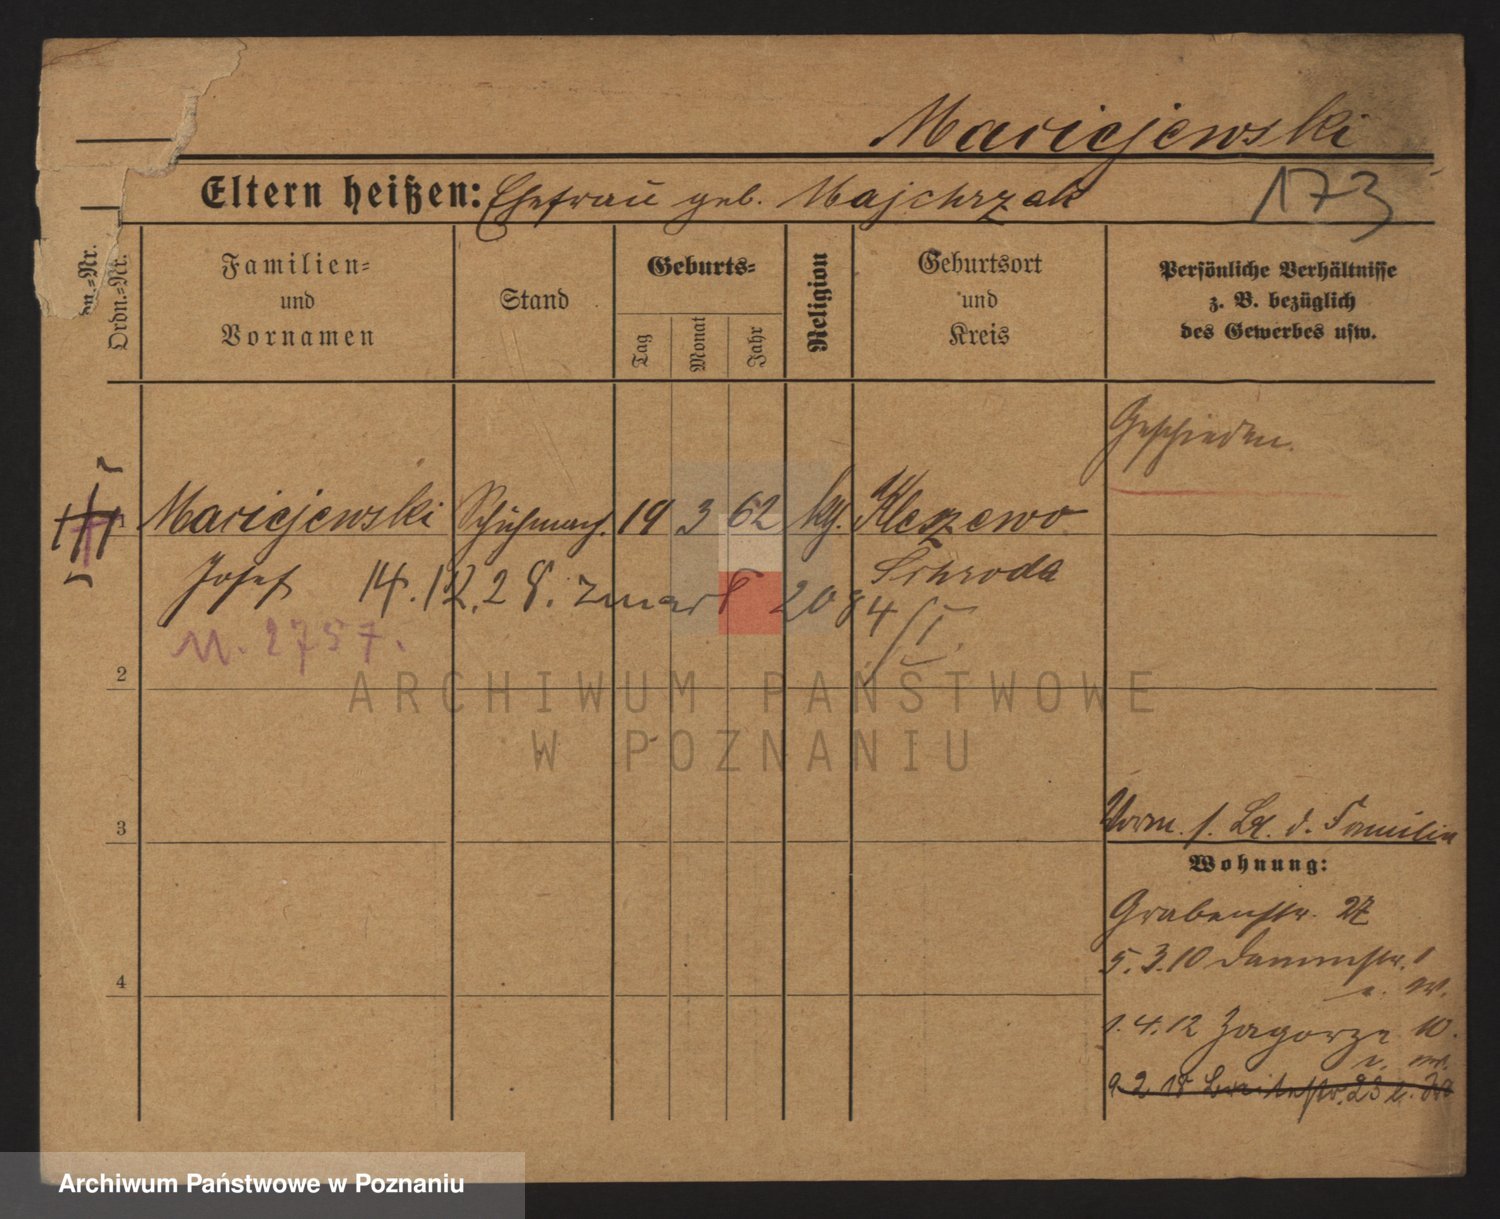 Maciejewski
Eltern heißen: Ehefrau geb. Majchrzak
173
Ordn.-Nr.
Familien-
und
Vornamen
Stand
Geburts-
Tag
Monat
Jahr
Religion
Geburtsort
und
Kreis
Persönliche Verhältnisse
z. B. bezüglich
des Gewerbes usw.
Geschieden.
Maciejewski Schuhmach. 19 3 62 kth. Kleszewo
Josef 14.12.28. zmarł 2084/I. Schroda
M. 2757.
2
3
4
ARCHIWUM PAŃSTWOWE
W POZNANIU
d. Familie
Wohnung:
Grabenstr. 27
5.3.10 Dammstr. 1
1.4.12 Zagorze 10.
9.2.18 Breitestr. 23
Archiwum Państwowe w Poznaniu